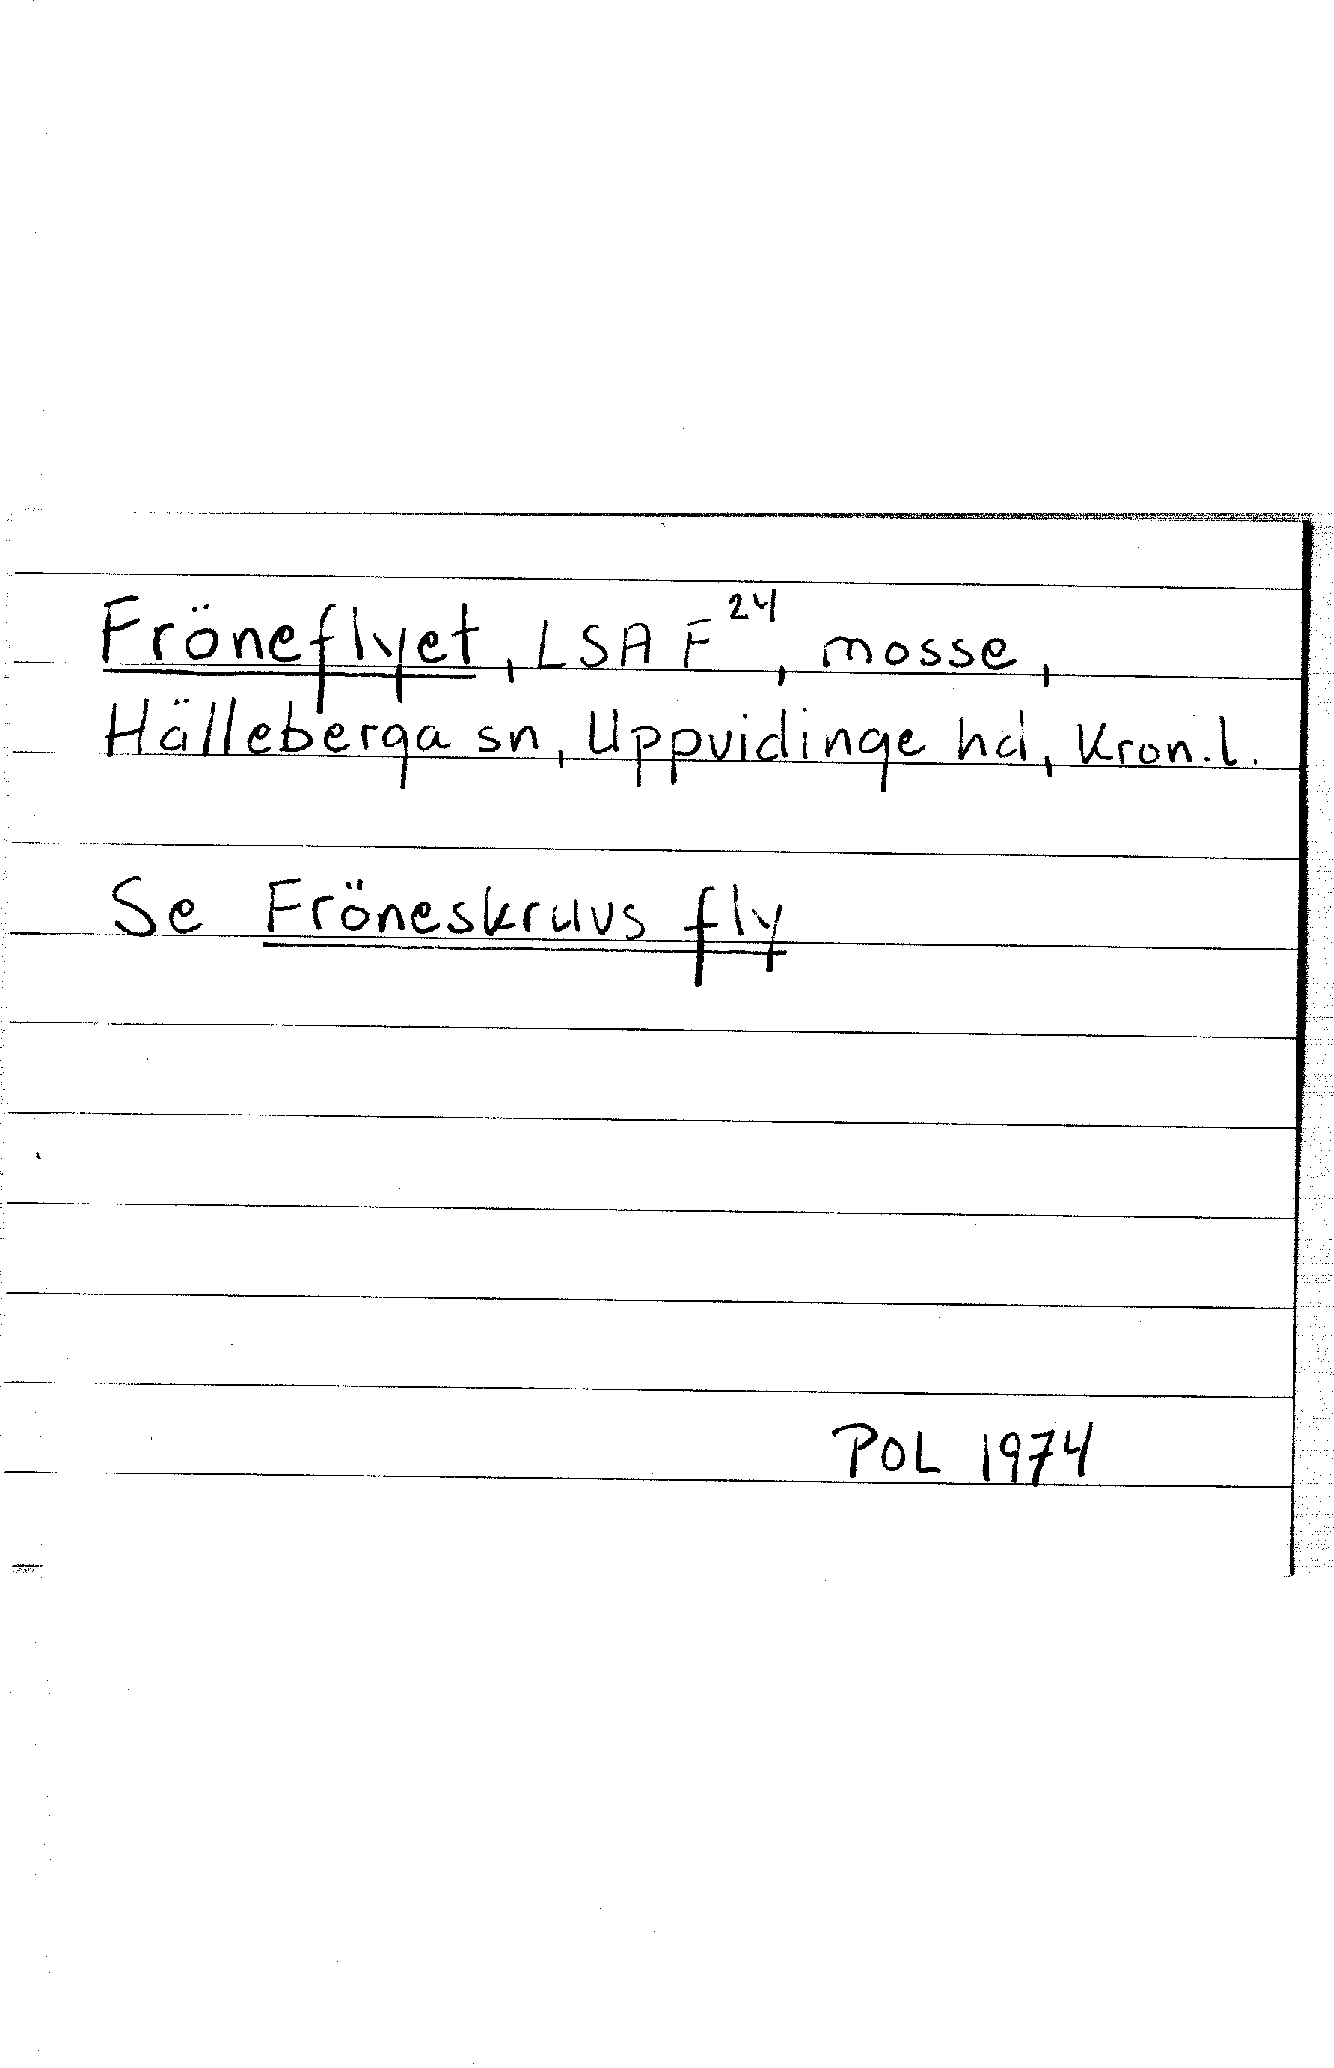 Fröneflyet, LSA F²⁴, mosse,
Hälleberga sn, Uppvidinge hd, Kron.l.
Se Fröneskruvs fly
POL 1974